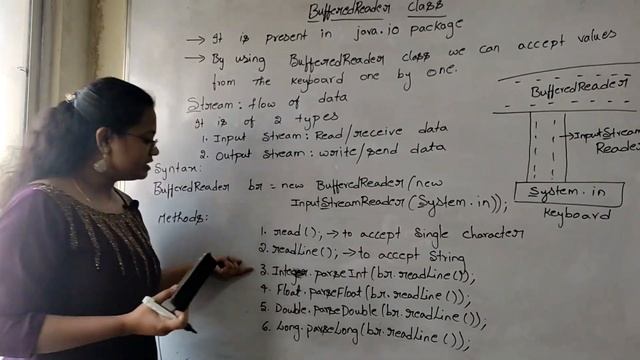 BufferedReader class
→ It is present in java.io package
→ By using BufferedReader class we can accept values
from the keyboard one by one.
Stream: flow of data
It is of 2 types
1. Input Stream: Read/receive data
2. Output Stream: write/send data
Syntax:
BufferedReader br = new BufferedReader(new
InputStreamReader(System.in));
Methods:
1. read(); → to accept single character
2. readLine(); → to accept String
3. Integer.parseInt(br.readLine());
4. Float.parseFloat(br.readLine());
5. Double.parseDouble(br.readLine());
6. Long.parseLong(br.readLine());
BufferedReader
→ InputStream
Reader
System.in
Keyboard